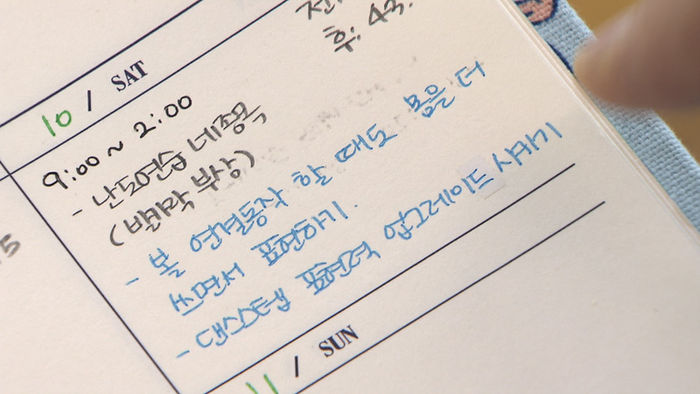 후: 43.
10 / SAT
9:00~2:00
- 난도연습 네종목
(발바닥 부상)
- 볼 연결동작 할 때도 몸을 더
쓰면서 표현하기.
- 댄스스텝 표현력 업그레이드 시키기
11 / SUN